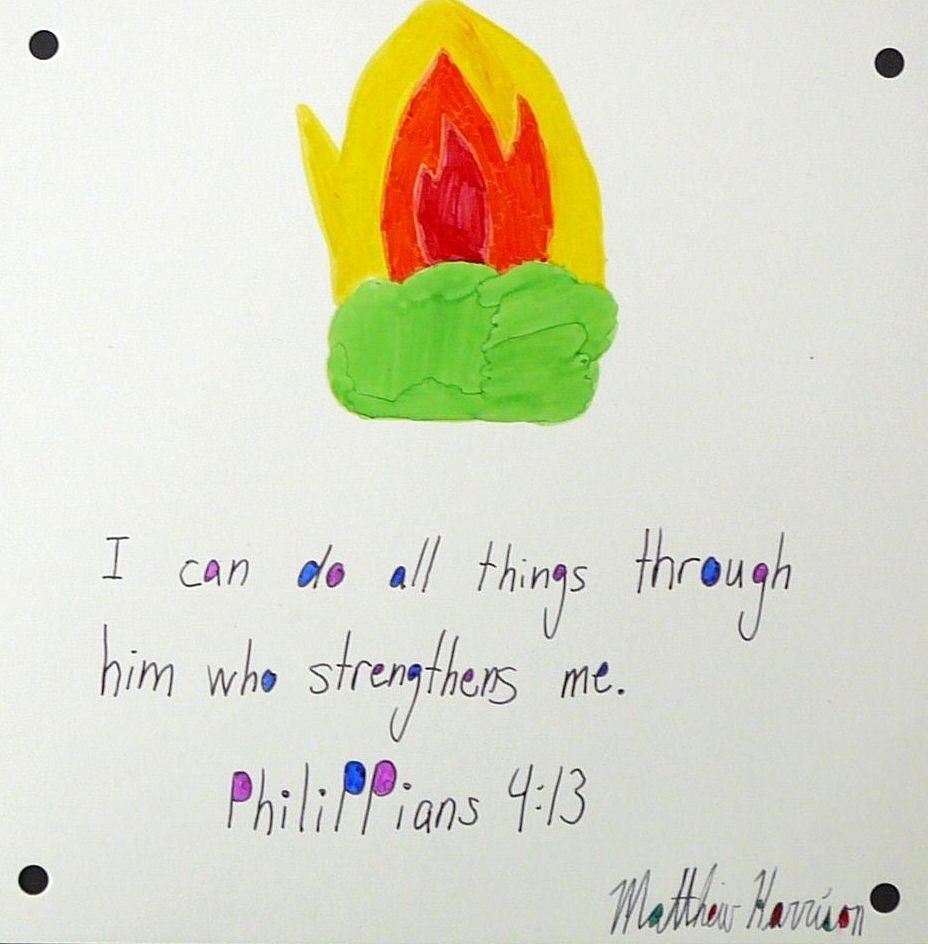 I can do all things through
him who strengthens me.
PhiliPPians 4:13
Matthew Harrison